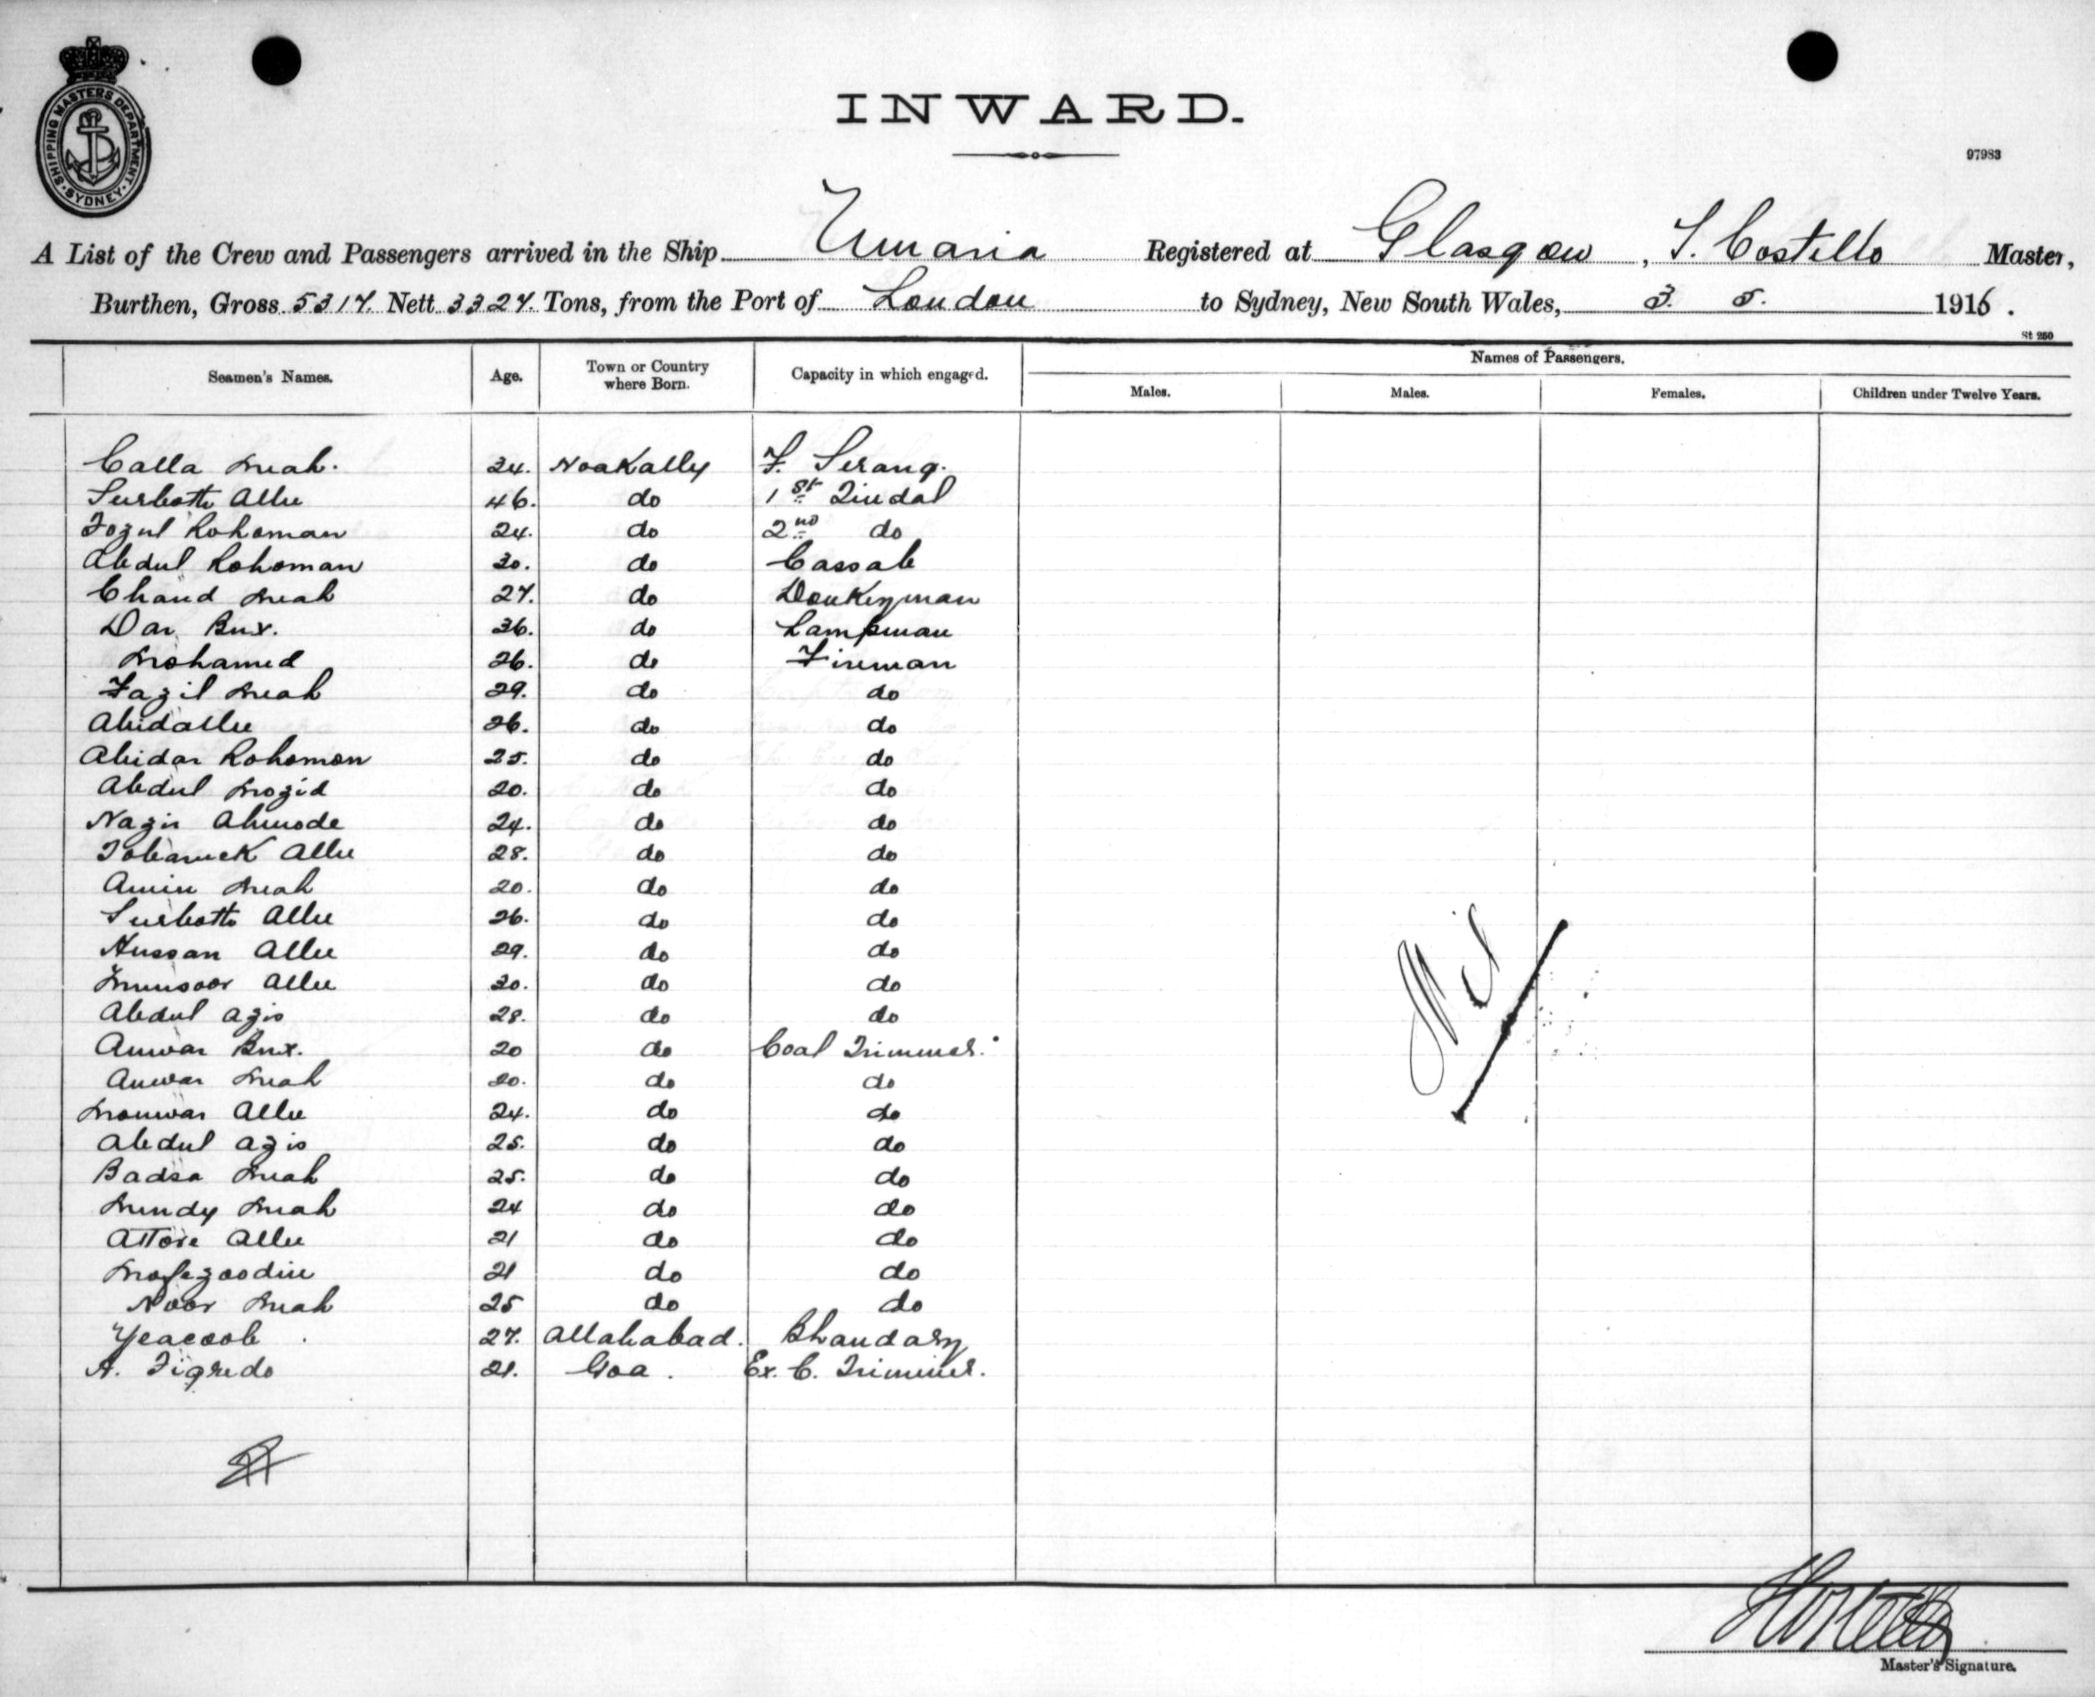 SHIPPING MASTERS DEPARTMENT
SYDNEY
INWARD.
97983
A List of the Crew and Passengers arrived in the Ship Umaria Registered at Glasgow, S. Costello Master,
Burthen, Gross 5317. Nett 3327. Tons, from the Port of London to Sydney, New South Wales, 3. 5. 1916.
St 250
Seamen's Names. Age. Town or Country where Born. Capacity in which engaged. Names of Passengers.
Males. Males. Females. Children under Twelve Years.
Calla Meah. 34. Noakally F. Serang.
Surbotte Allee 46. do 1st Tindal
Fozul Rohoman 24. do 2nd do
Abdul Rohoman 30. do Cassab
Chand Meah 27. do Donkeyman
Dar Bux. 36. do Lampman
Mohamed 26. do Fireman
Fazil Meah 29. do do
Abidallee 26. do do
Abidar Rohomon 25. do do
Abdul Mozid 20. do do
Nazir Ahmode 24. do do
Tobaruck Allee 28. do do
Amin Meah 20. do do
Surbotte Allee 26. do do
Hussan Allee 29. do do
Munsoor Allee 30. do do
Abdul Azis 28. do do
Anwar Bux. 20 do Coal Trimmer.
Anwar Meah 20. do do
Monwar Allee 24. do do
Abdul Azis 25. do do
Badsa Meah 25. do do
Mundy Meah 24 do do
Attore Allee 21 do do
Mofezoodin 21 do do
Noor Meah 25 do do
Yeacoob 27. Allahabad. Bhandary
A. Figredo 21. Goa. Ex. C. Trimmer.
Nil
Master's Signature.